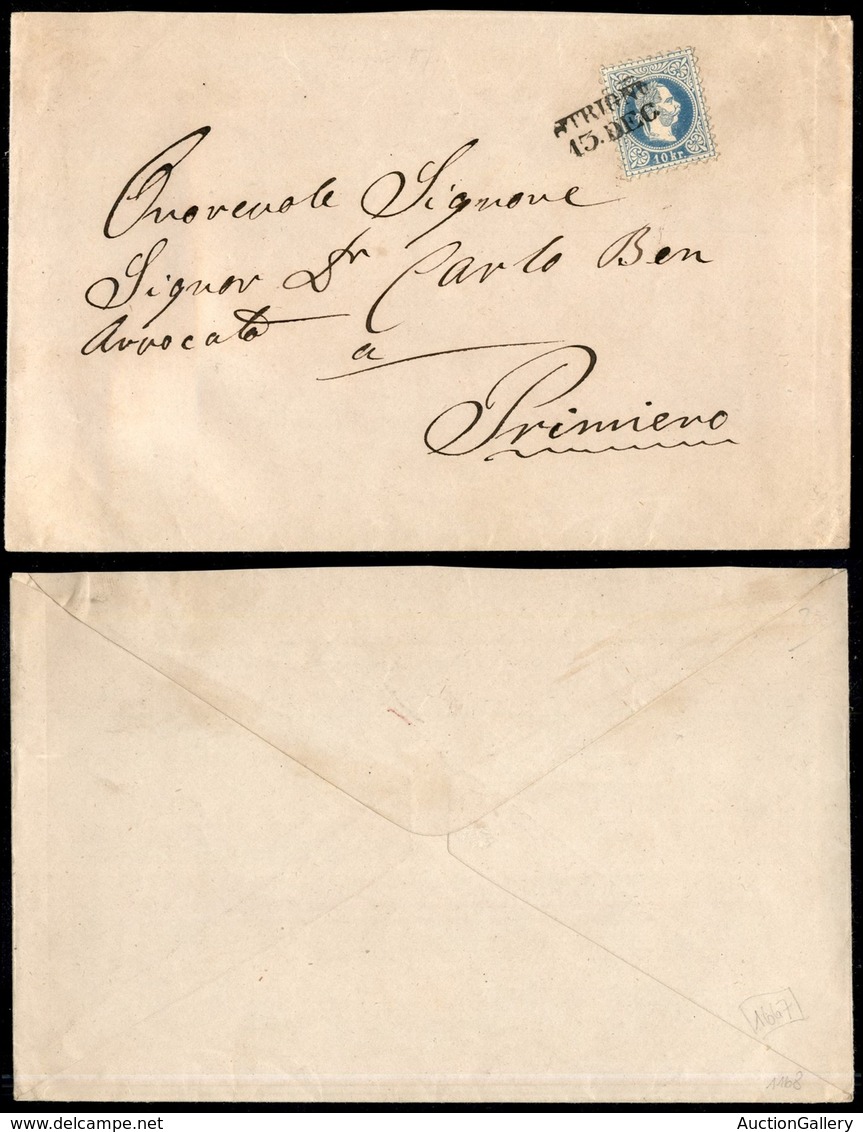 STRIGNO
13. DEC
10 kr.
Onorevole Signore
Signor Dr Carlo Ben
Avvocato
a
Primiero
1667
1168
AuctionGallery